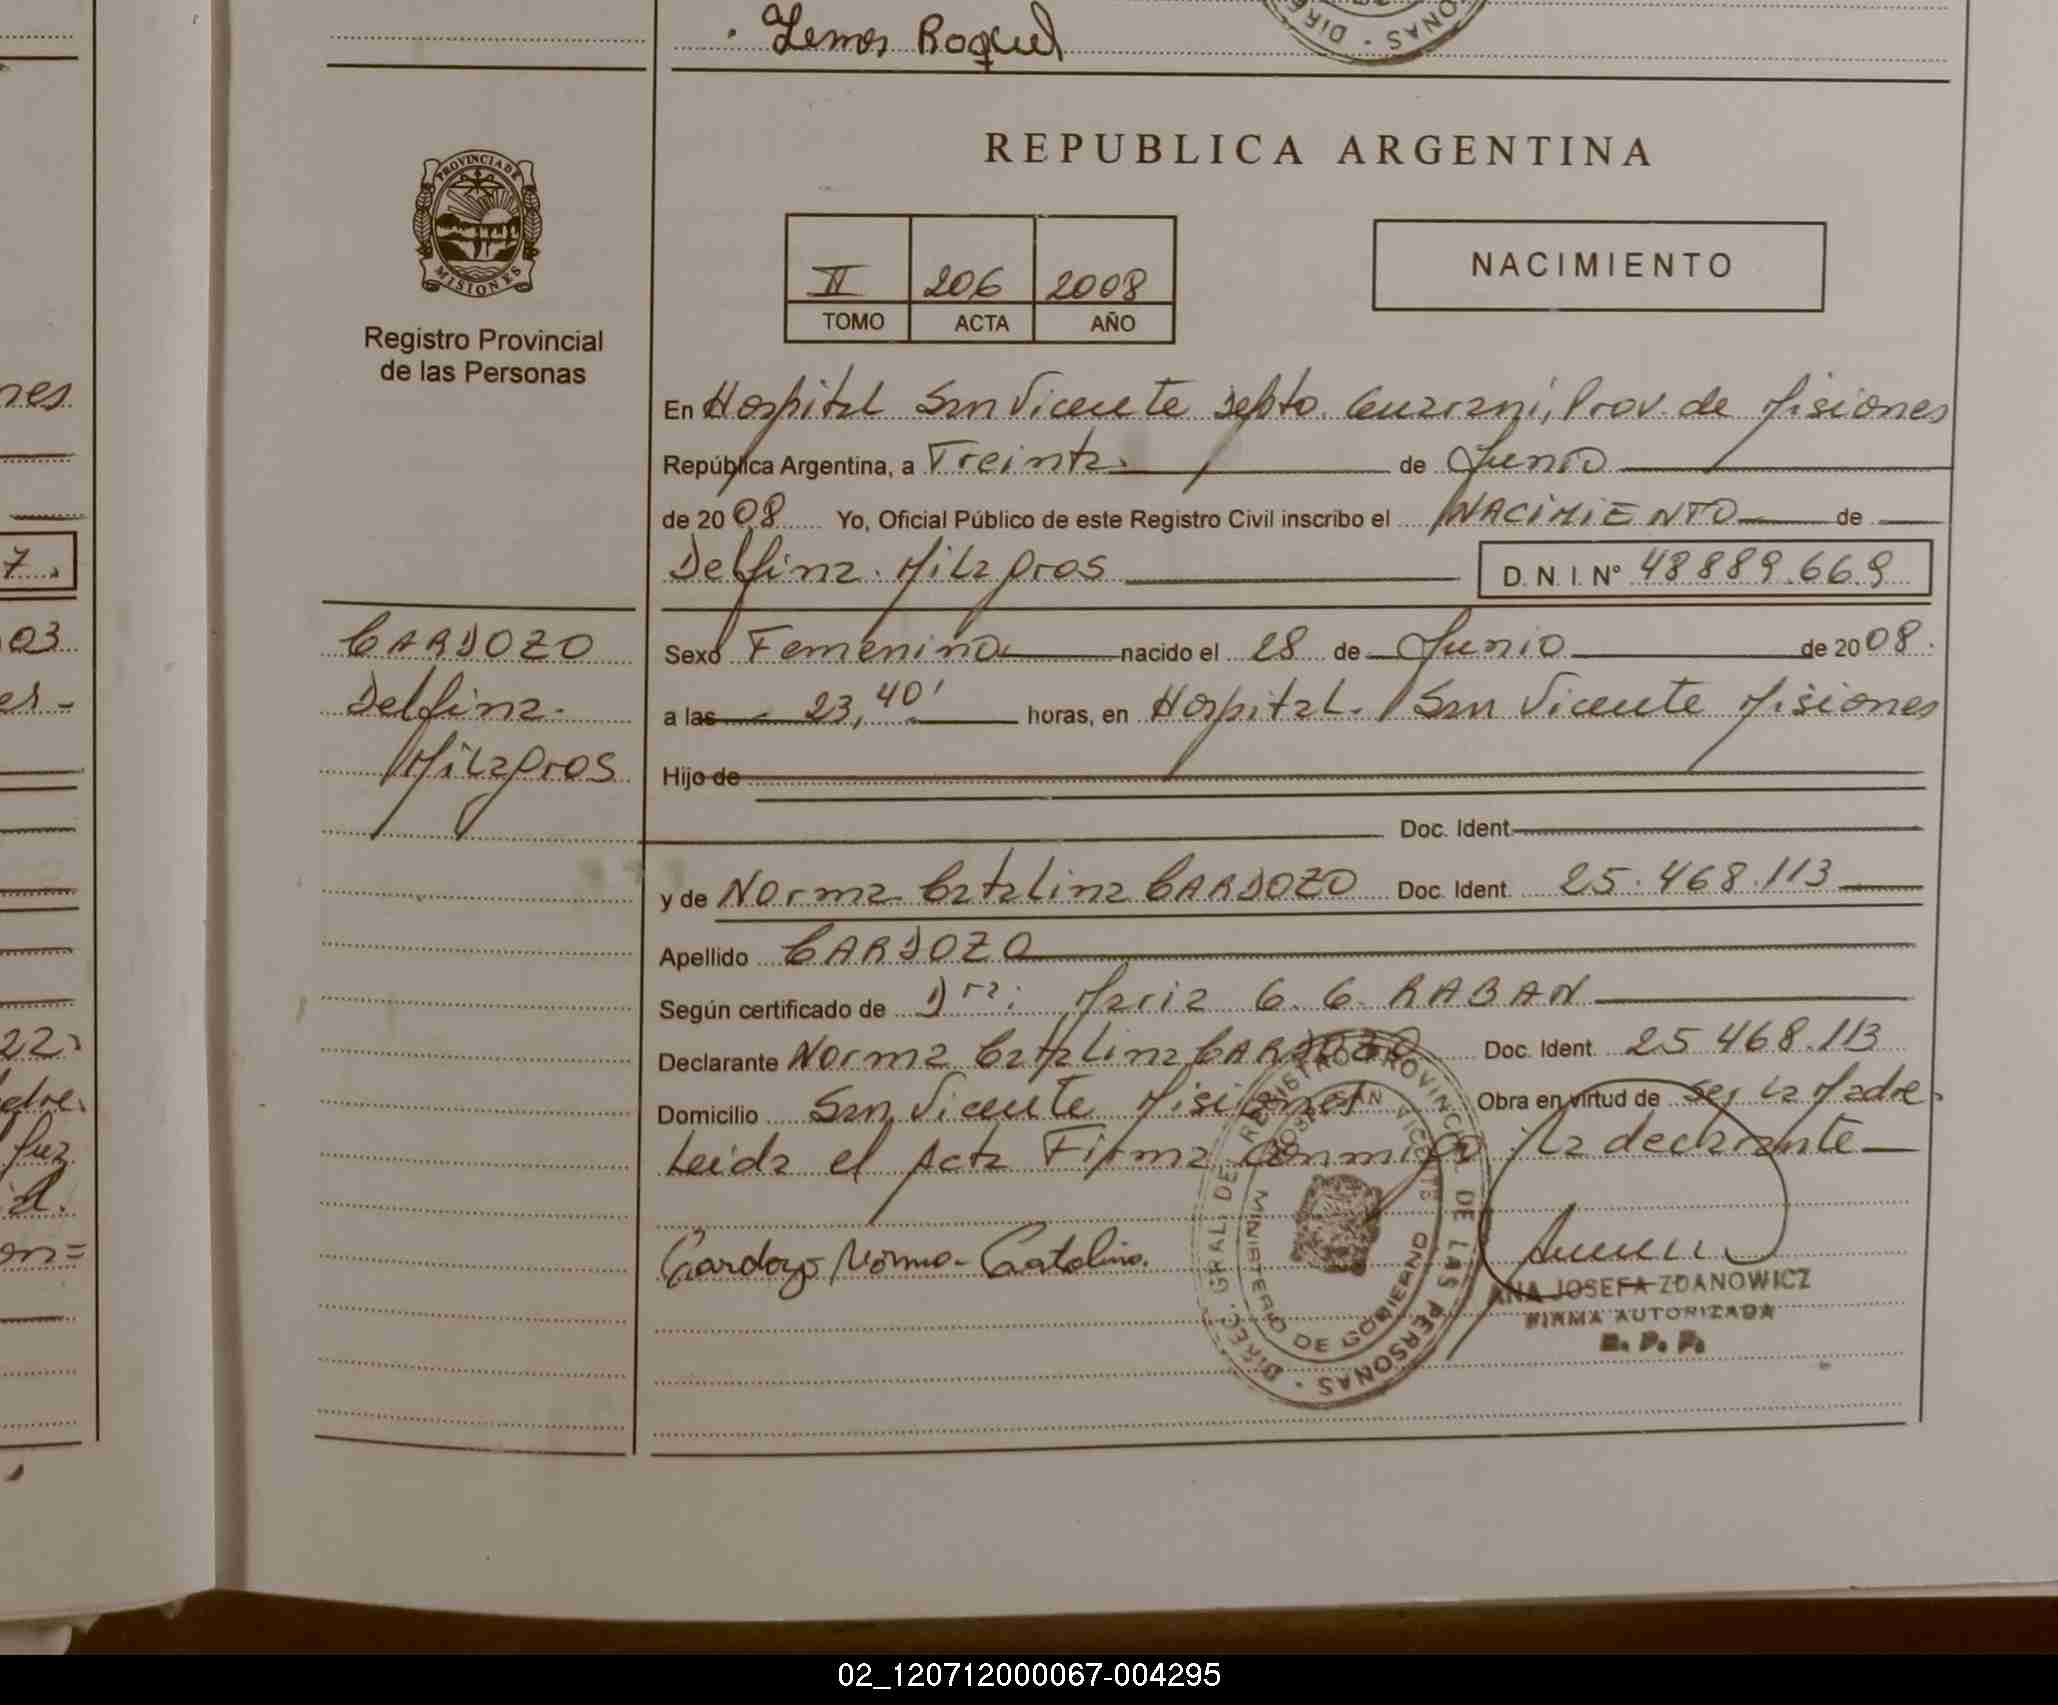 Lemos Raquel
REPUBLICA ARGENTINA
PROVINCIA DE
MISIONES
Registro Provincial
de las Personas
II 206 2008
TOMO ACTA AÑO
NACIMIENTO
En Hospital San Vicente Depto. Guaraní, Prov. de Misiones
República Argentina, a Treinta de Junio
de 2008 Yo, Oficial Público de este Registro Civil inscribo el NACIMIENTO de
Delfina Milagros D. N. I. Nº 48889.669
CARDOZO
Delfina
Milagros
Sexo Femenino nacido el 28 de Junio de 2008.
a las 23,40' horas, en Hospital San Vicente Misiones
Hijo de
Doc. Ident.
y de Norma Catalina CARDOZO Doc. Ident. 25.468.113
Apellido CARDOZO
Según certificado de Dra: Maria G. G. RABAN
Declarante Norma Catalina CARDOZO Doc. Ident. 25 468.113
Domicilio San Vicente Misiones Obra en virtud de ser la Madre.
Leida el Acta Firma conmigo la declarante
Cardozo Norma Catalina.
DIREC. GRAL. DE REGISTRO PROVINCIAL DE LAS PERSONAS
MINISTERIO DE GOBIERNO
ANA JOSEFA ZDANOWICZ
FIRMA AUTORIZADA
R. P. P.
02_120712000067-004295